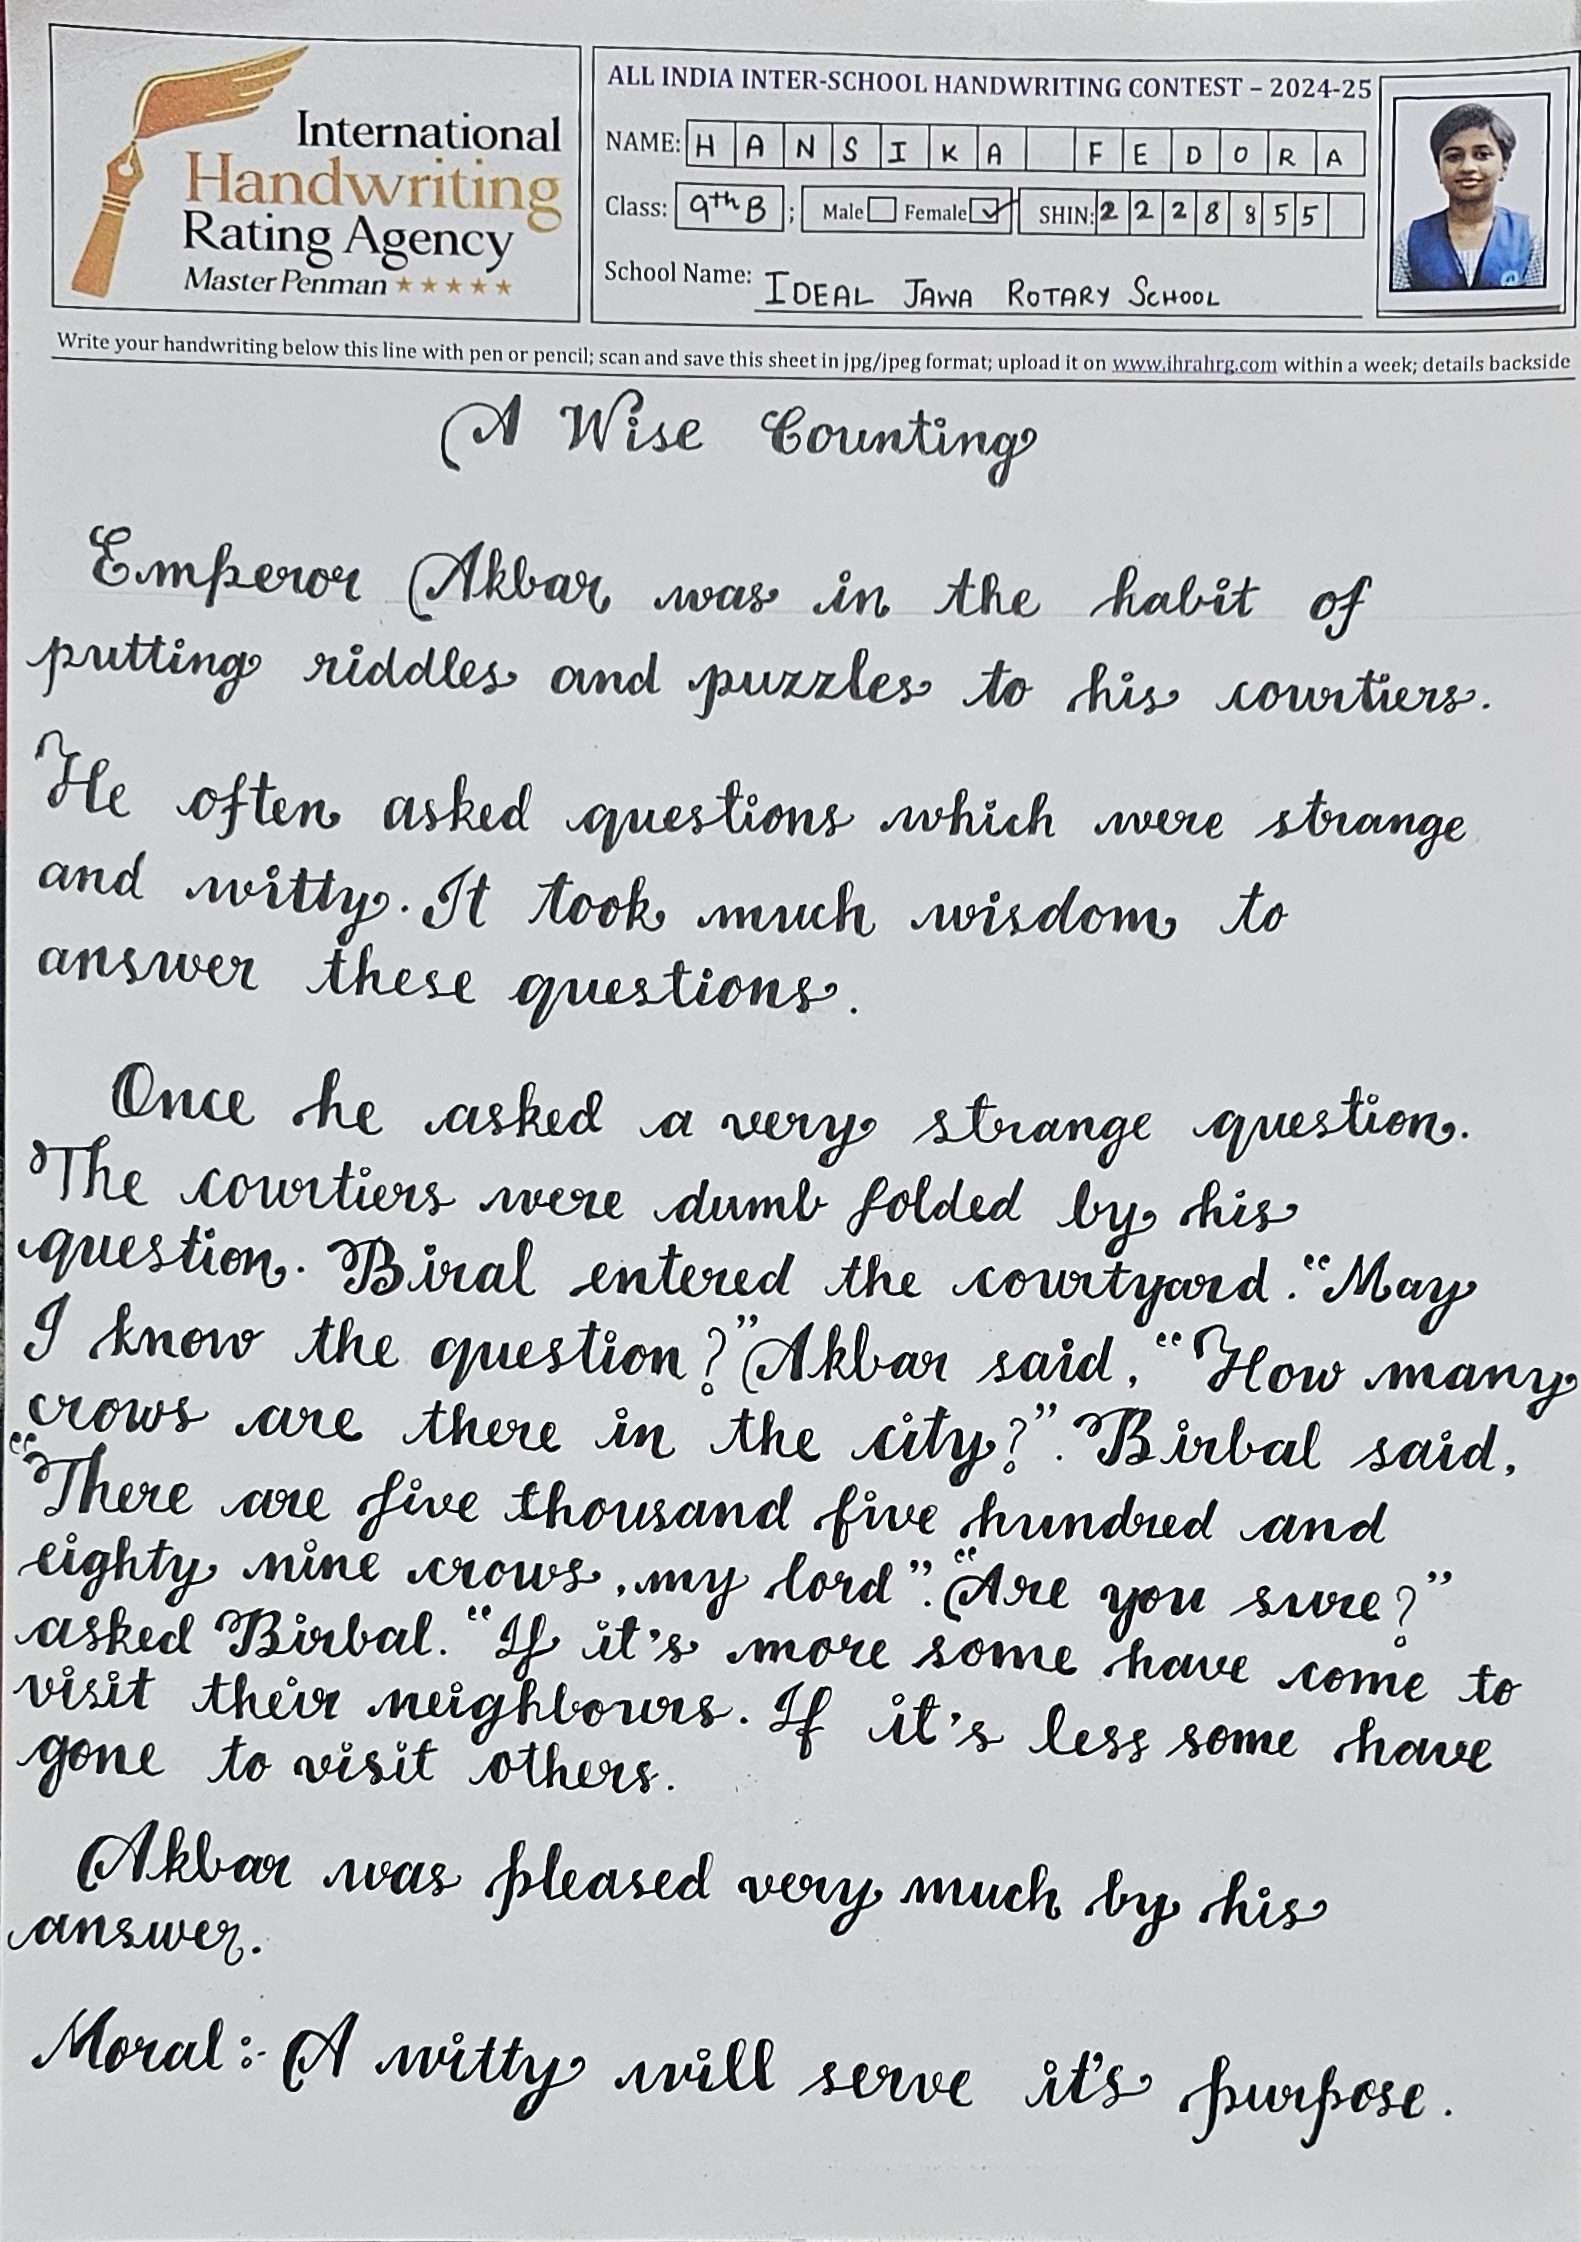 International
Handwriting
Rating Agency
Master Penman ★★★★★
ALL INDIA INTER-SCHOOL HANDWRITING CONTEST – 2024-25
NAME: HANSIKA FEDORA
Class: 9th B ; Male Female ✓ SHIN: 22288 55
School Name: IDEAL JAWA ROTARY SCHOOL
Write your handwriting below this line with pen or pencil; scan and save this sheet in jpg/jpeg format; upload it on www.ihrahrg.com within a week; details backside
A Wise Counting
Emperor Akbar was in the habit of
putting riddles and puzzles to his courtiers.
He often asked questions which were strange
and witty. It took much wisdom to
answer these questions.
Once he asked a very strange question.
The courtiers were dumb folded by his
question. Biral entered the courtyard. "May
I know the question?" Akbar said, "How many
crows are there in the city?". Birbal said,
"There are five thousand five hundred and
eighty nine crows, my lord". "Are you sure?"
asked Birbal. "If it's more some have come to
visit their neighbours. If it's less some have
gone to visit others.
Akbar was pleased very much by his
answer.
Moral:- A witty will serve it's purpose.